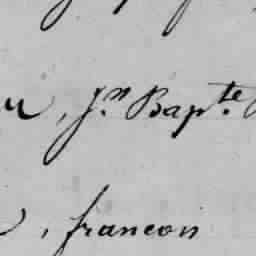 , J.n Bap.te
, francois